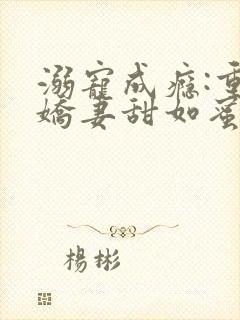 溺寵成癮:重
嬌妻甜如蜜
楊彬